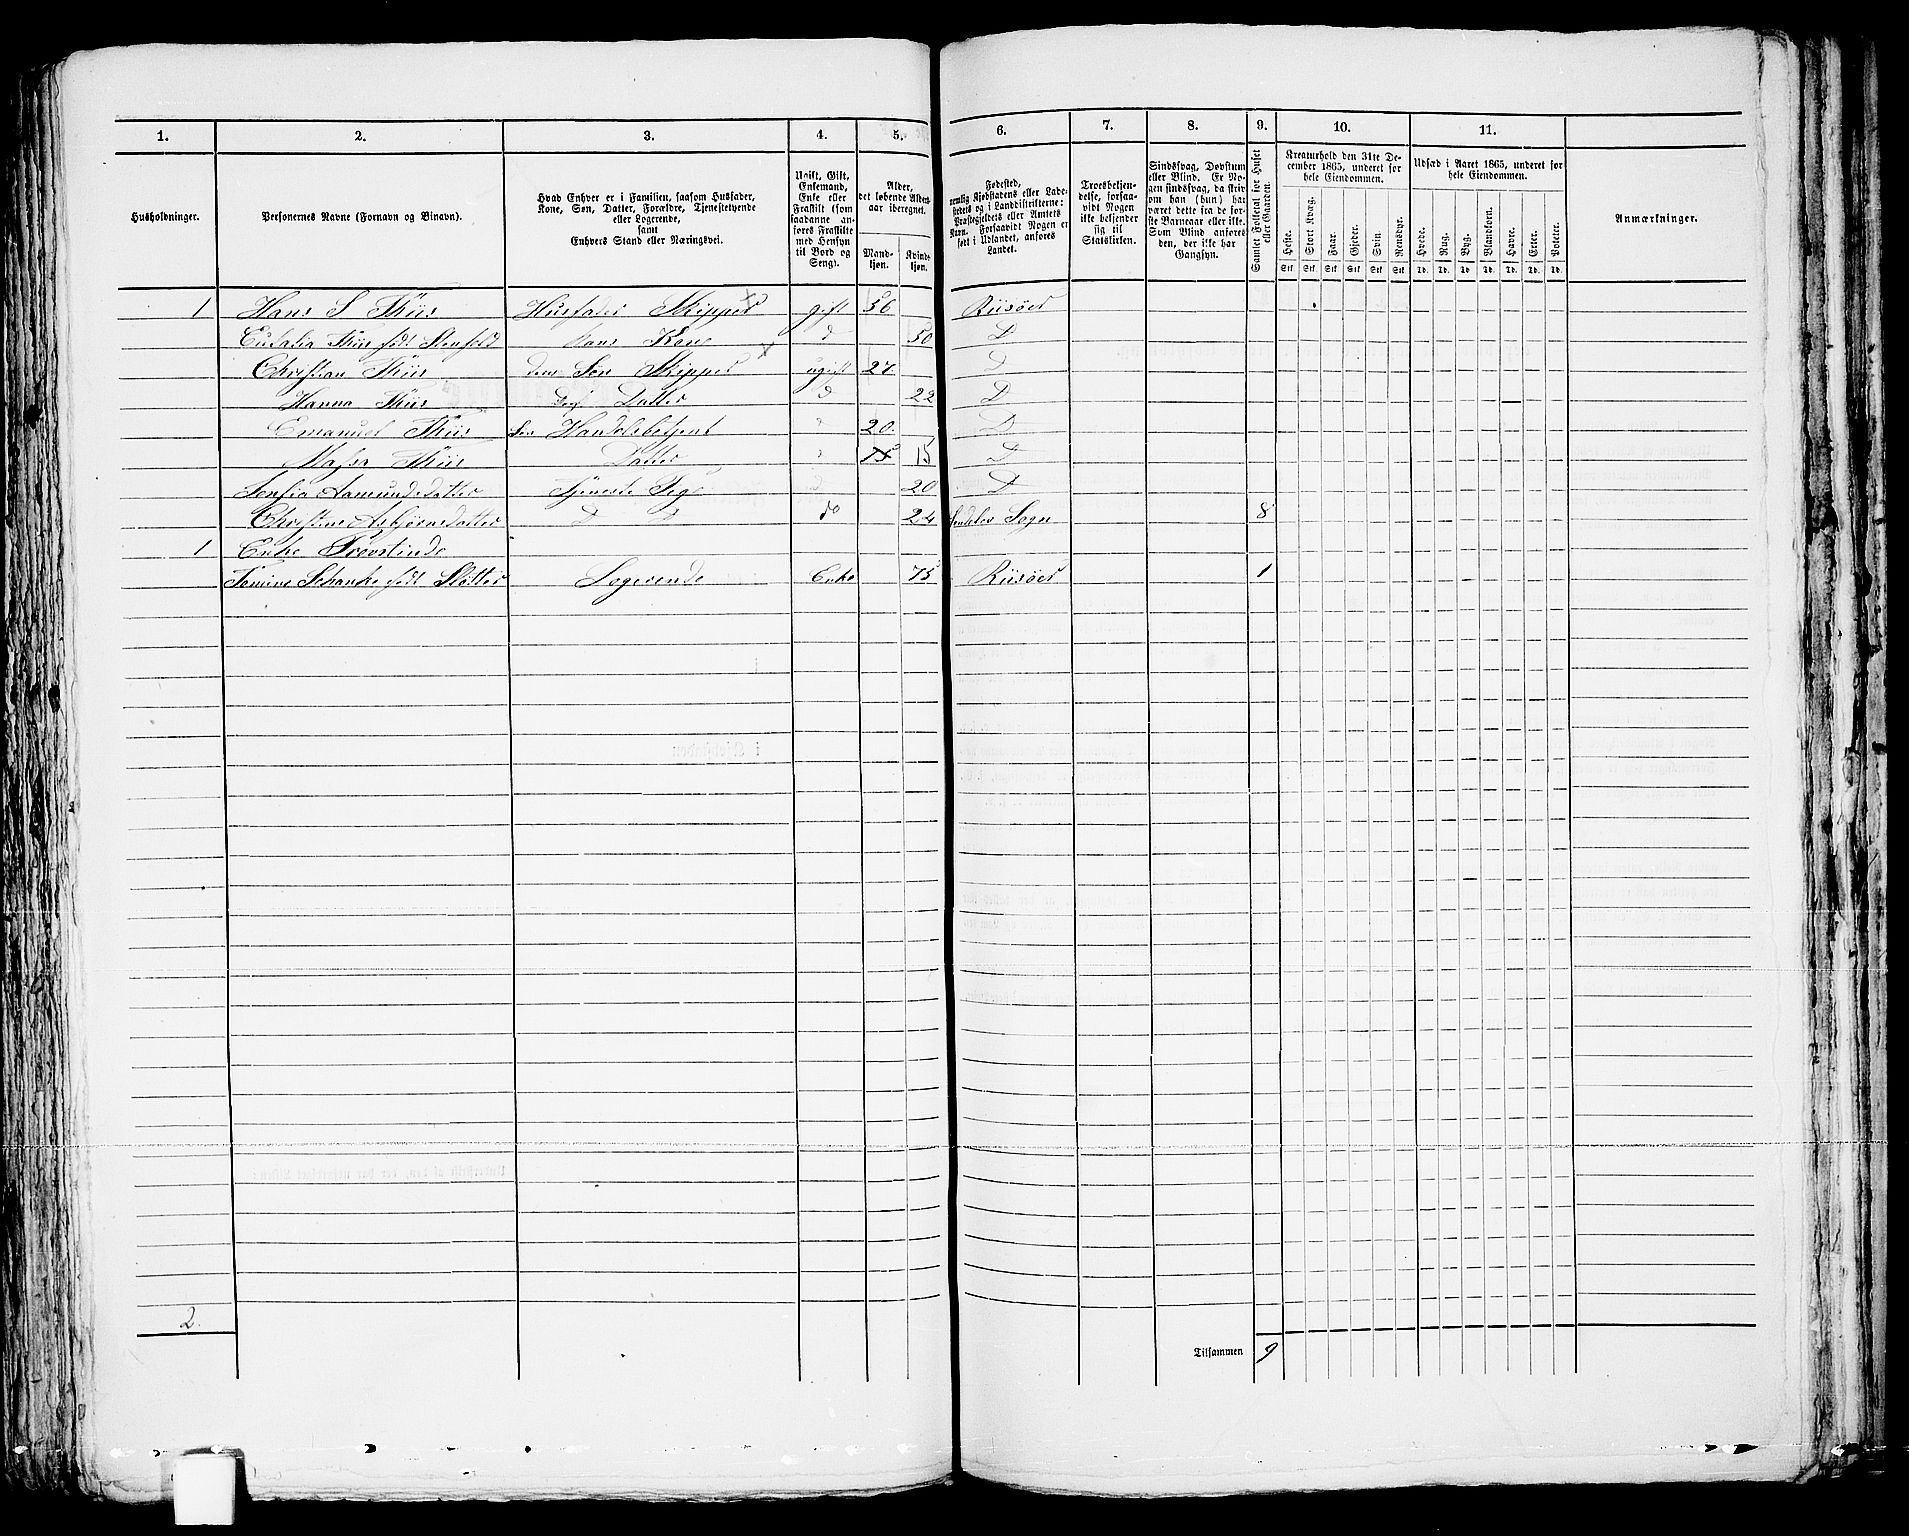 1. 2. 3. 4. 5. 6. 7. 8. 9. 10. 11.
Husholdninger.
Personernes Navne (Fornavn og Binavn).
Hvad Enhver er i Familien, saasom Husfader,
Kone, Søn, Datter, Forældre, Tjenestetyende
eller Logerende,
samt
Enhvers Stand eller Næringsvei.
Ugift, Gift,
Enkemand,
Enke eller
Fraskilt (som
saadanne an-
føres Fraskilte
med Hensyn
til Bord og
Seng).
Alder,
det løbende Alders-
aar iberegnet.
Mand-
kjøn.
Kvinde-
kjøn.
Fødested,
nemlig Kjøbstadens eller Lade-
stedets og i Landdistrikterne:
Præstegjeldets eller Amtets
Navn. Forsaavidt Nogen er
født i Udlandet, anføres
Landet.
Troesbekjen-
delse, forsaa-
vidt Nogen
ikke bekjender
sig til
Statskirken.
Sindssvag, Døvstum
eller Blind. Er No-
gen sindssvag, da skriv
om han (hun) har
været dette fra de før-
ste Barneaar eller ikke.
Som Blind anføres
den, der ikke har
Gangsyn.
Samlet Folketal for Huset
eller Gaarden.
Kreaturhold den 31te De-
cember 1865, underet for
hele Eiendommen.
Heste. Stort Kvæg. Faar. Gjeder. Svin. Rensdyr.
Stk Stk Stk Stk Stk Stk
Udsæd i Aaret 1865, underet for
hele Eiendommen.
Hvede. Rug. Byg. Blankorn. Havre. Erter. Poteter.
Td. Td. Td. Td. Td. Td. Td.
Anmærkninger.
1 Hans S Thiis Husfader Skipper gift 56 Riisöer
Eulalia Thiis født Stenfeld Hans Kone d 50 D
Christian Thiis deres Søn Skipper ugift 27 D
Hanna Thiis Datter d 22 D
Emanuel Thiis Søn Handelsbetjent 20 D
Thiis Datter 15 15 D
Aamundsdatter Tjeneste Pige 20 D
Christine Asbjörnsdatter D D do 24 Søndeløv Sogn 8
1 Enke
Schanke født Logerende Enke 75 Riisöer 1
2.
Tilsammen 9